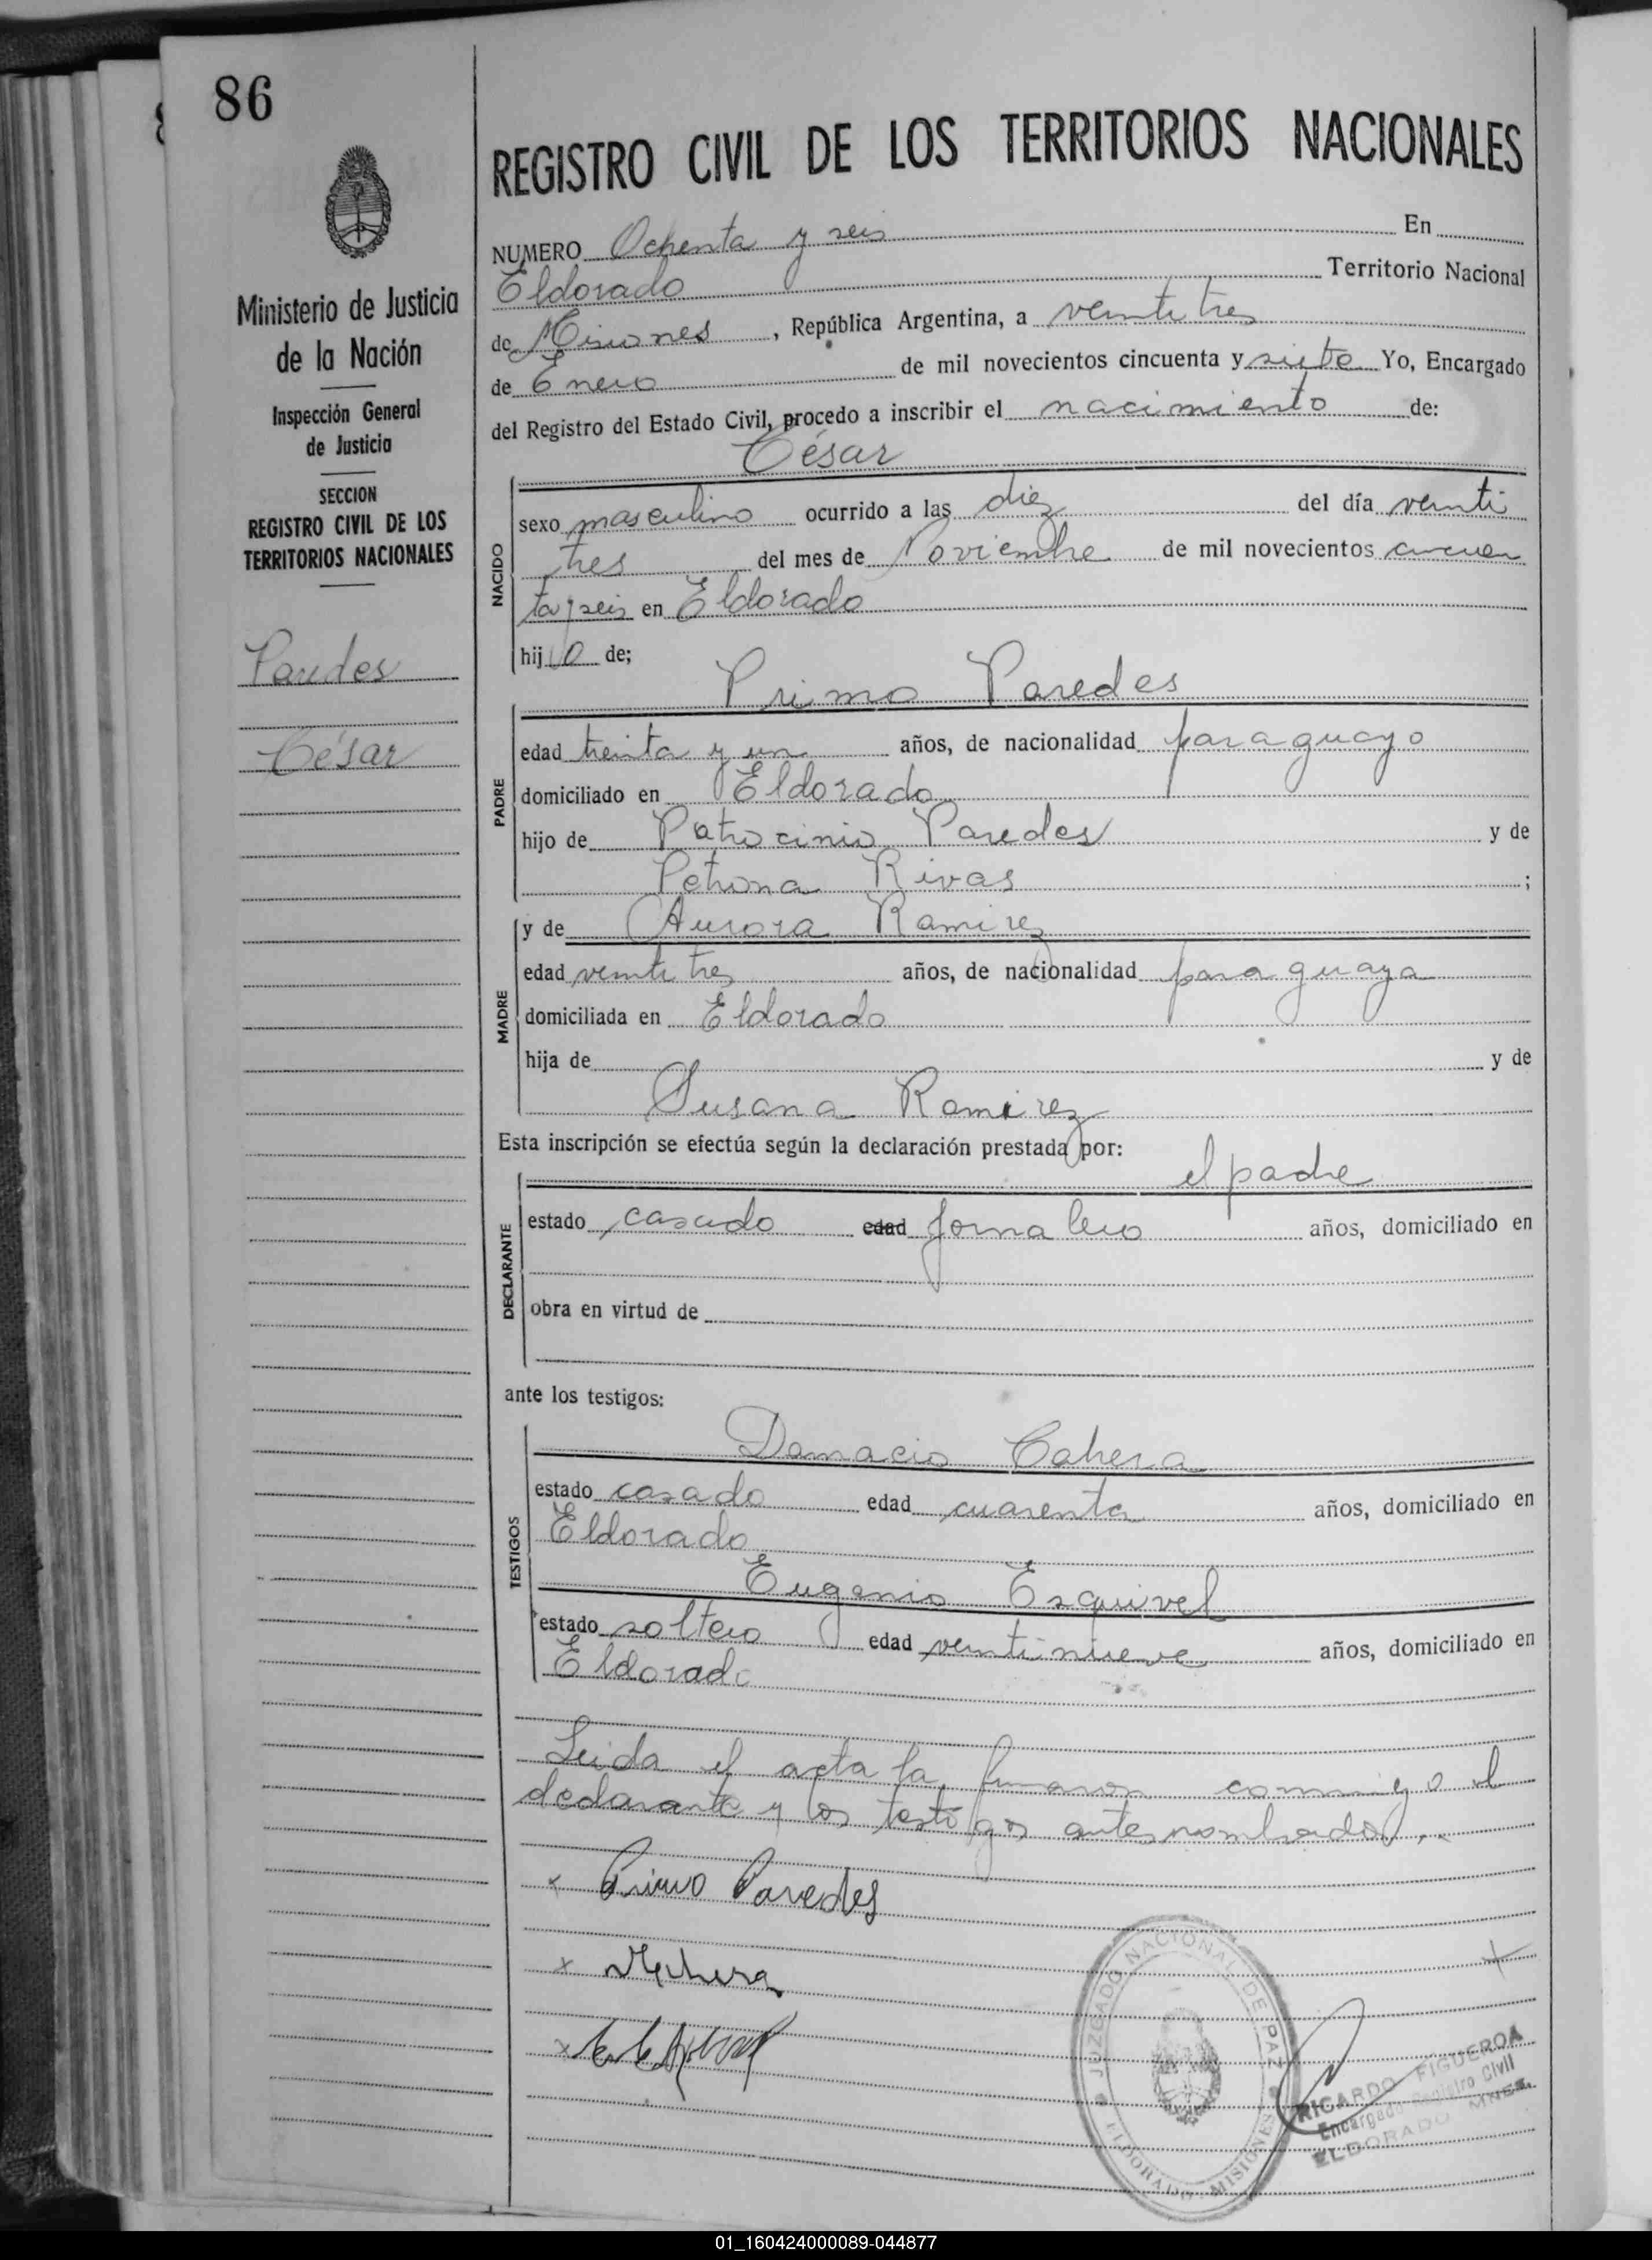 86
REGISTRO CIVIL DE LOS TERRITORIOS NACIONALES
Ministerio de Justicia
de la Nación
Inspección General
de Justicia
SECCION
REGISTRO CIVIL DE LOS
TERRITORIOS NACIONALES
Paredes
César
NUMERO Ochenta y seis En
Eldorado Territorio Nacional
de Misiones, República Argentina, a veintitres
de Enero de mil novecientos cincuenta y siete Yo, Encargado
del Registro del Estado Civil, procedo a inscribir el nacimiento de:
César
NACIDO
sexo masculino ocurrido a las diez del día veinti
tres del mes de Noviembre de mil novecientos cincuen
ta y seis en Eldorado
hijo de;
Primo Paredes
PADRE
edad treinta y un años, de nacionalidad paraguayo
domiciliado en Eldorado
hijo de Patrocinio Paredes y de
Petrona Rivas ;
MADRE
y de Aurora Ramirez
edad veintitres años, de nacionalidad paraguaya
domiciliada en Eldorado
hija de y de
Susana Ramirez
Esta inscripción se efectúa según la declaración prestada por:
el padre
DECLARANTE
estado casado edad Jornalero años, domiciliado en
obra en virtud de
ante los testigos:
TESTIGOS
Damacio Cabrera
estado casado edad cuarenta años, domiciliado en
Eldorado
Eugenio Esquivel
estado soltero edad veintinueve años, domiciliado en
Eldorado
Leida el acta la firmaron conmigo el
declarante y los testigos antes nombrados..
x Primo Paredes
x
x
JUZGADO NACIONAL DE PAZ
ELDORADO - MISIONES
RICARDO FIGUEROA
Encargado Registro Civil
ELDORADO MNES.
01_160424000089-044877